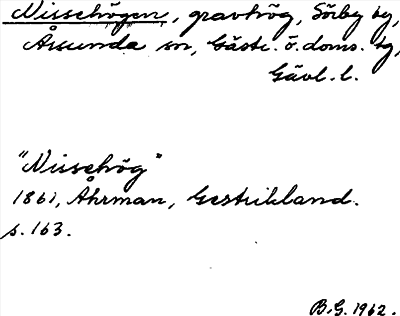 Nissehögen, gravhög, Sörby by,
Årsunda sn, Gästr. ö. doms. tg,
Gävl. l.
"Nissehög"
1861, Åhrman, Gestrikland.
s. 163.
B.G. 1962.